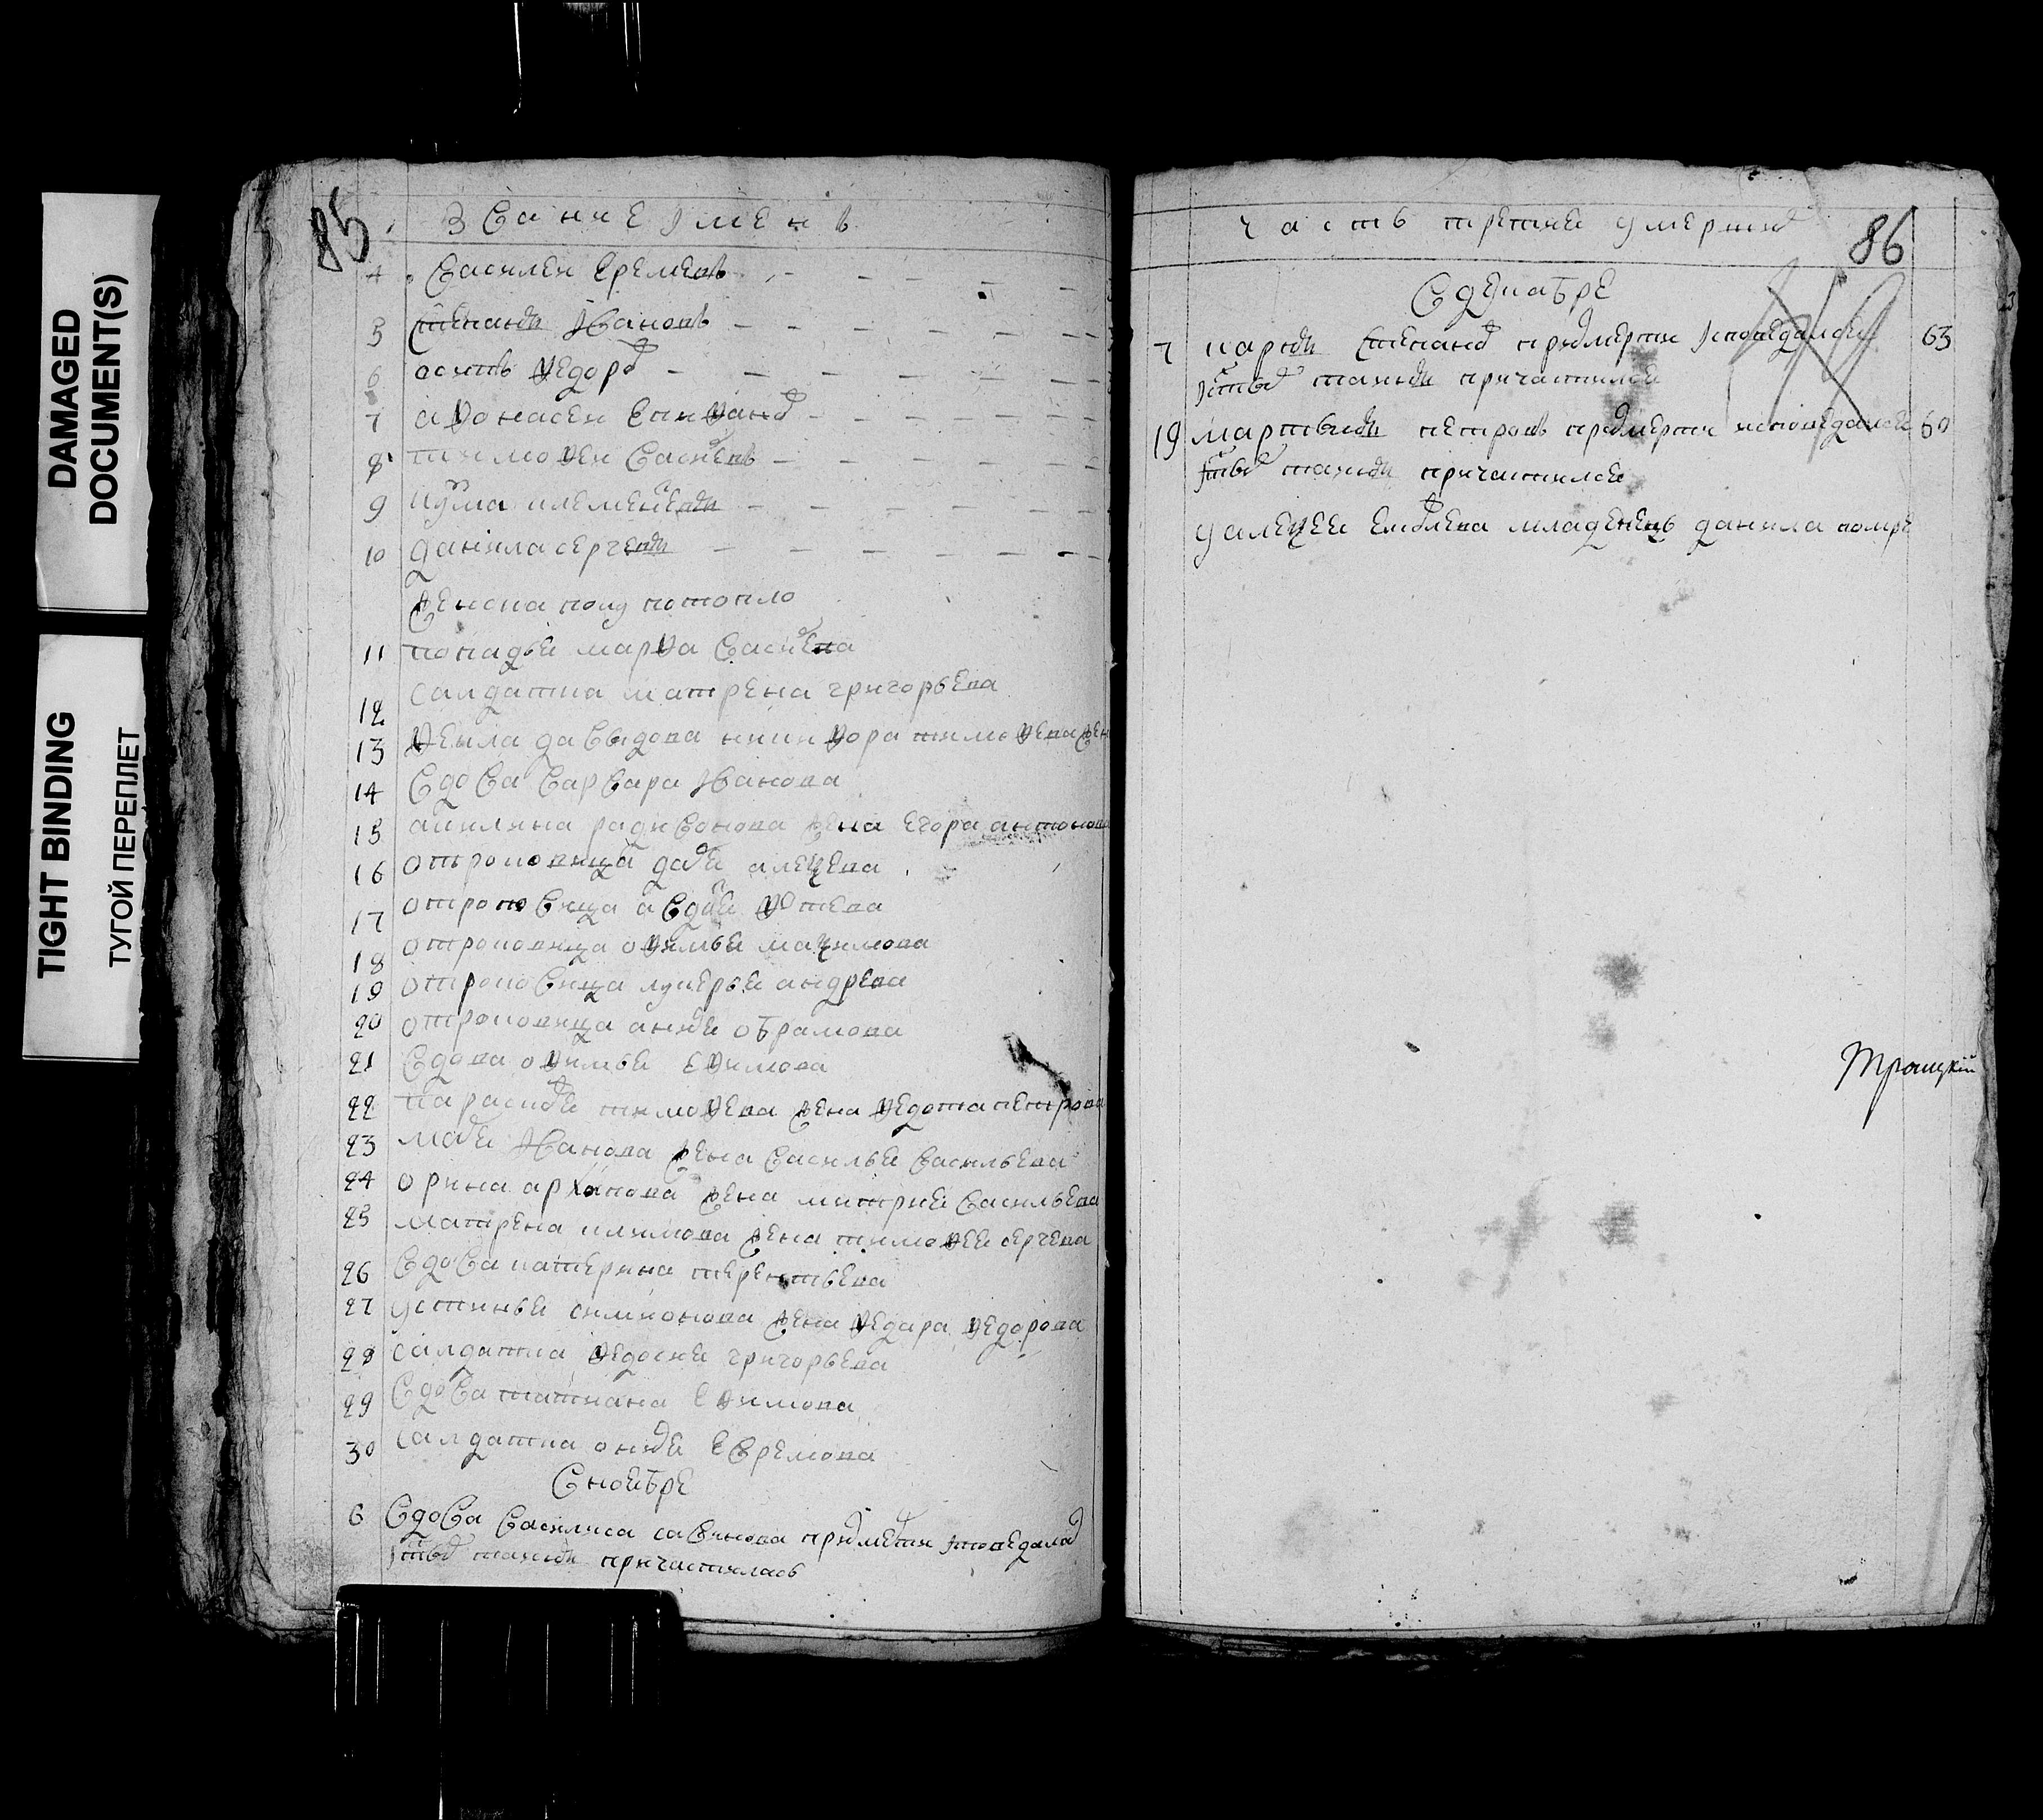 DAMAGED
DOCUMENT(S)
TIGHT BINDING
ТУГОЙ ПЕРЕПЛЕТ
85
Звание именъ
4 василеи еремеевъ
5 степанъ Ивановъ
6 осипъ ѳедоро
7 аѳонасеи епиѳано
8 тимоѳеи васиевъ
9 кузма клеменевъ
10 данила сергевъ
женска полу потопло
11 попадья марѳа васиева
12 салдатка матрена григорьева
13 ѳекла давыдова никиѳора тимоѳева жен
14 вдова варвара Иванова
15 акилина радивонова жена егора антонова
16 отроковица дае алеѯева
17 отроковица авдоя ѳотева
18 отроковица оѳимья маѯимова
19 отроковица лукерья андрева
20 отроковица анна обрамова
21 вдова оѳимья еѳимова
22 параскове тимоѳева жена ѳедота петрова
23 мая Иванова жена василья васильева
24 орина архипова жена митрия васильева
25 матрена климова жена тимоѳея сергева
26 вдова катерина терентьева
27 устинья симионова жена ѳедара ѳедорова
28 салдатка ѳедосия григорьева
29 вдова татиана еѳимова
30 салдатка онне евремова
в ноябре
6 вдова василиса савинова присмети исповедала
истых таинъ причастилась
часть третия умерших
86
в декабре
7 карпъ степано при смерти исповедался 63
истых таинъ причастился
19 мартынъ петровъ при смерти исповедался 60
истых таинъ причастился
у алеѯея емелева младенецъ данила помре
Троицкій